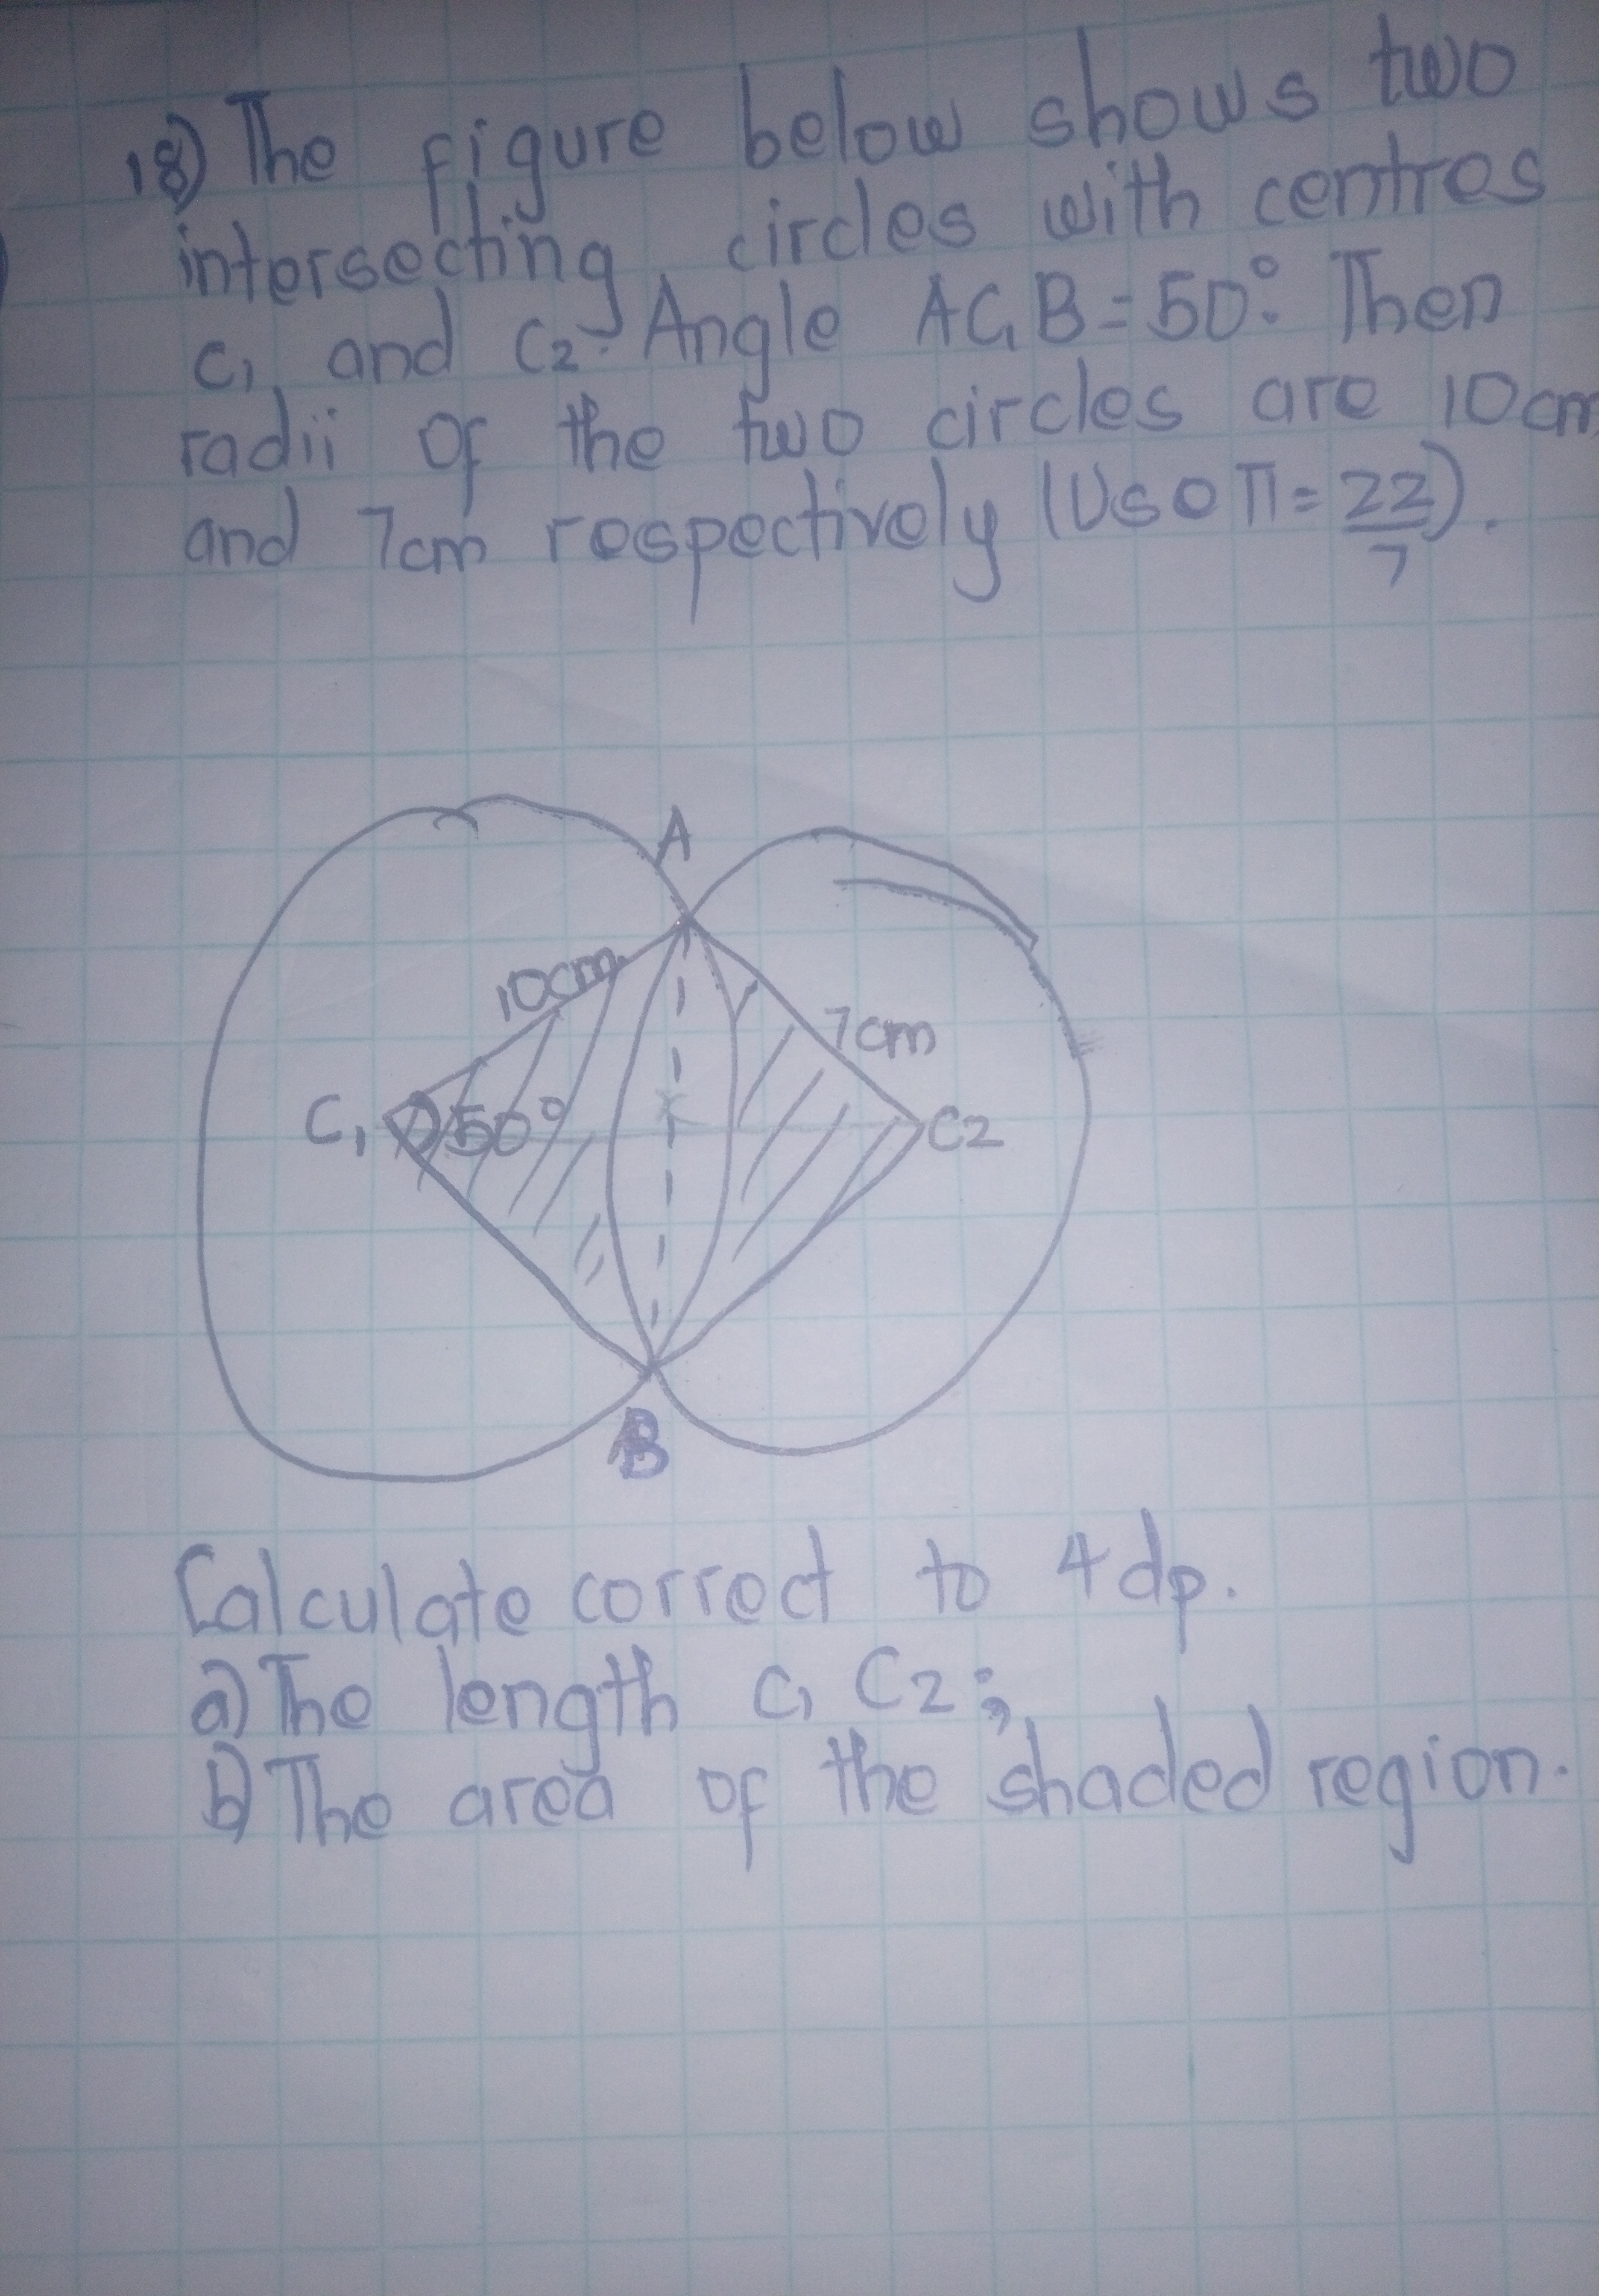 18) The figure below shows two
intersecting circles with centres
C1 and C2. Angle AC1B=50°. Then
radii of the two circles are 10cm
and 7cm respectively (Use π=22/7).
A
10cm
7cm
C1
50°
C2
B
Calculate correct to 4dp.
a) The length C1 C2;
b) The area of the shaded region.